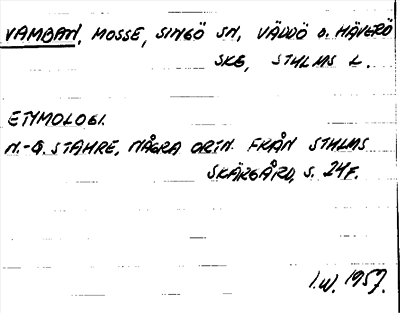 VAMBAN, MOSSE, SINGÖ SN, VÄDDÖ O. HÄVERÖ
SKG, STHLMS L.
ETYMOLOGI.
N.-G. STAHRE, NÅGRA ORTN. FRÅN STHLMS
SKÄRGÅRD, S. 24F.
I.W. 1957.